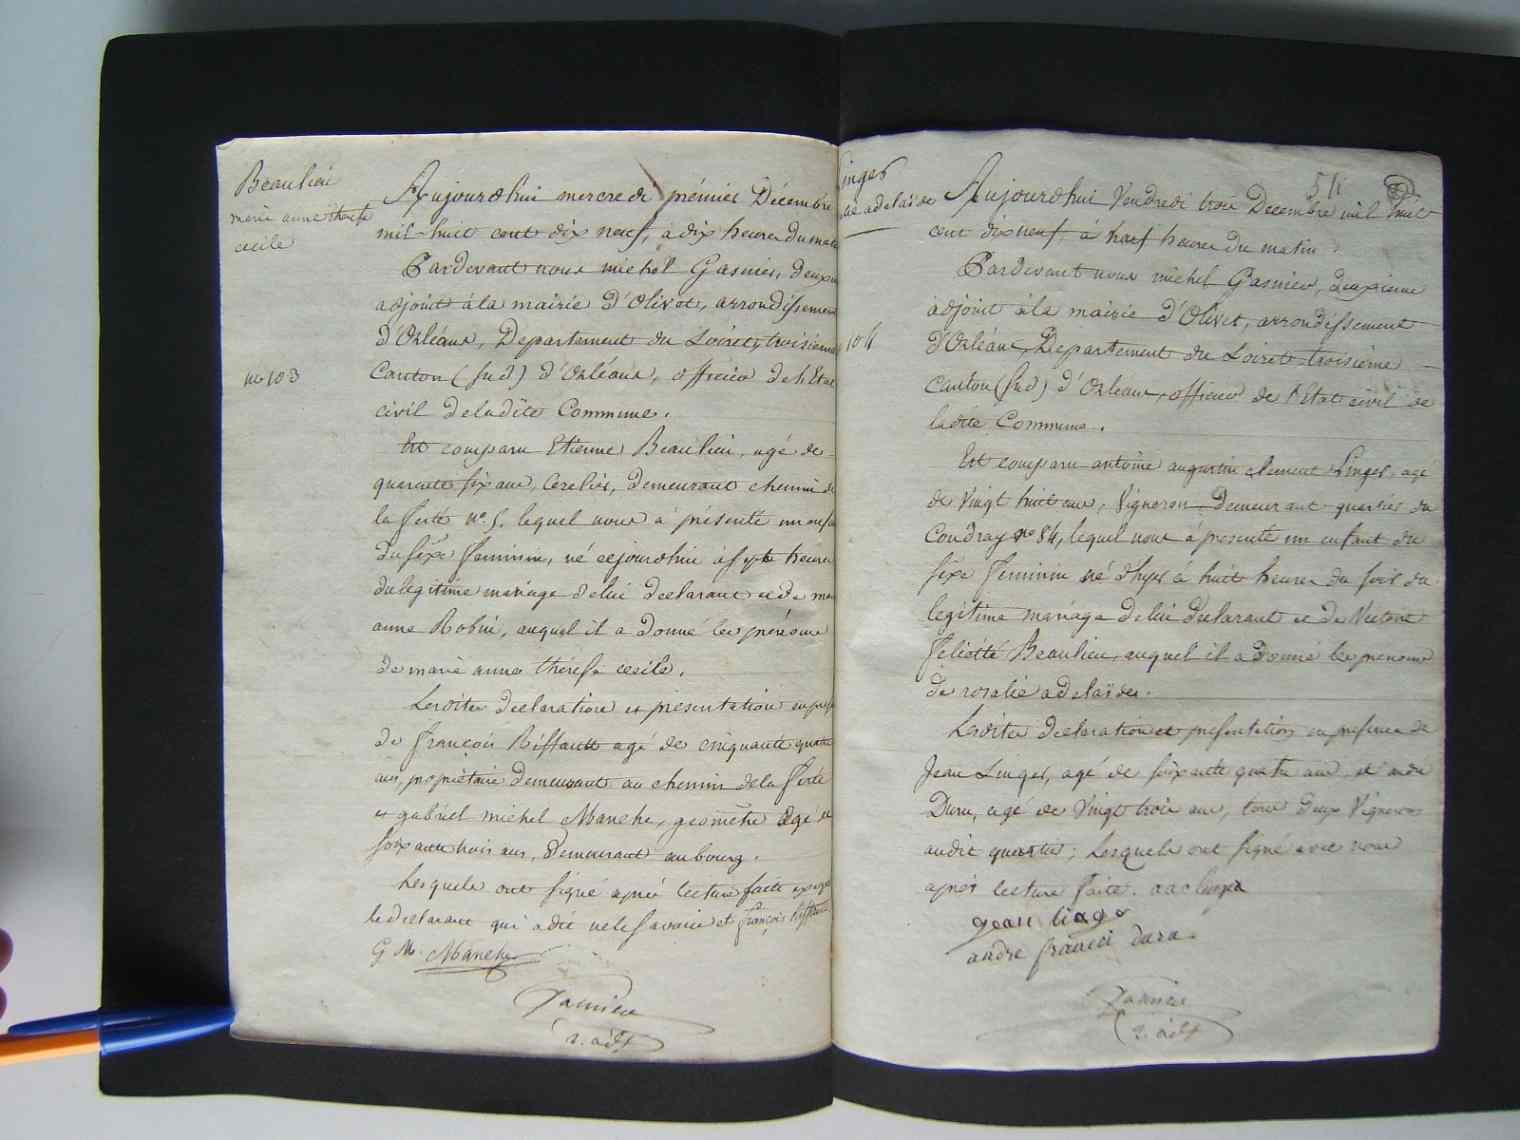 Beaulieu
marie anne therese
cecile
no 103
Aujourd'hui mercredi prémier Décembre
mil huit cent dix neuf, à dix heures du matin
Pardevant nous michel Gasnier, deuxieme
adjoint à la mairie d'Olivet, arrondissement
d'Orléans, Departement du Loiret, troisieme
Canton (sud) d'Orléans, officier de l'Etat
civil de ladite Commune.
Est comparu Etienne Beaulieu, agé de
quarente six ans, demeurant chemin de
la ferté no. 5. lequel nous a présenté un enfant
du sexe feminin, né cejourdhui à sept heures
du legitime mariage de lui declarant et de marie
anne Robin, auquel il a donné les prénoms
de marie anne thérese cecile.
Lesdites declaration et présentation en présence
de françois Riffault agé de cinquante quatre
ans, propriétaire demeurant au chemin de la ferté
et gabriel michel Manche, geometre agé de
soixante trois ans, demeurant au bourg.
Lesquels ont signé après lecture faite excepté
le declarant qui a dit ne le savoir et françois Riffault
G M. Manche
Gasnier
2. adjt
511
Linger
rosalie adelaïde
104
Aujourdhui Vendredi trois Decembre mil huit
cent dix neuf, à neuf heures du matin.
Pardevant nous michel Gasnier, deuxieme
adjoint à la mairie d'Olivet, arrondissement
d'Orléans, Departement du Loiret troisième
Canton (sud) d'Orleans, officier de l'Etat civil de
ladite Commune.
Est comparu antoine augustin clement Linger, agé
de vingt huit ans, Vigneron Demeurant quartier du
Coudray no 84, lequel nous à présenté un enfant du
sexe feminin né d'hyer à huit heures du soir du
legitime mariage de lui declarant et de Victoire
felicité Beaulieu, auquel il a donné les prenoms
de rosalie adelaïde.
Lesdites declaration et présentation en présence de
Jean Linger, agé de soixante quatre ans, et andré
Dura, agé de Vingt trois ans, tous deux Vignerons
audit quartier; Lesquels ont signé avec nous
après lecture faite. aac linger
gean linger
andre francoi dura
Gasnier
2. adjt